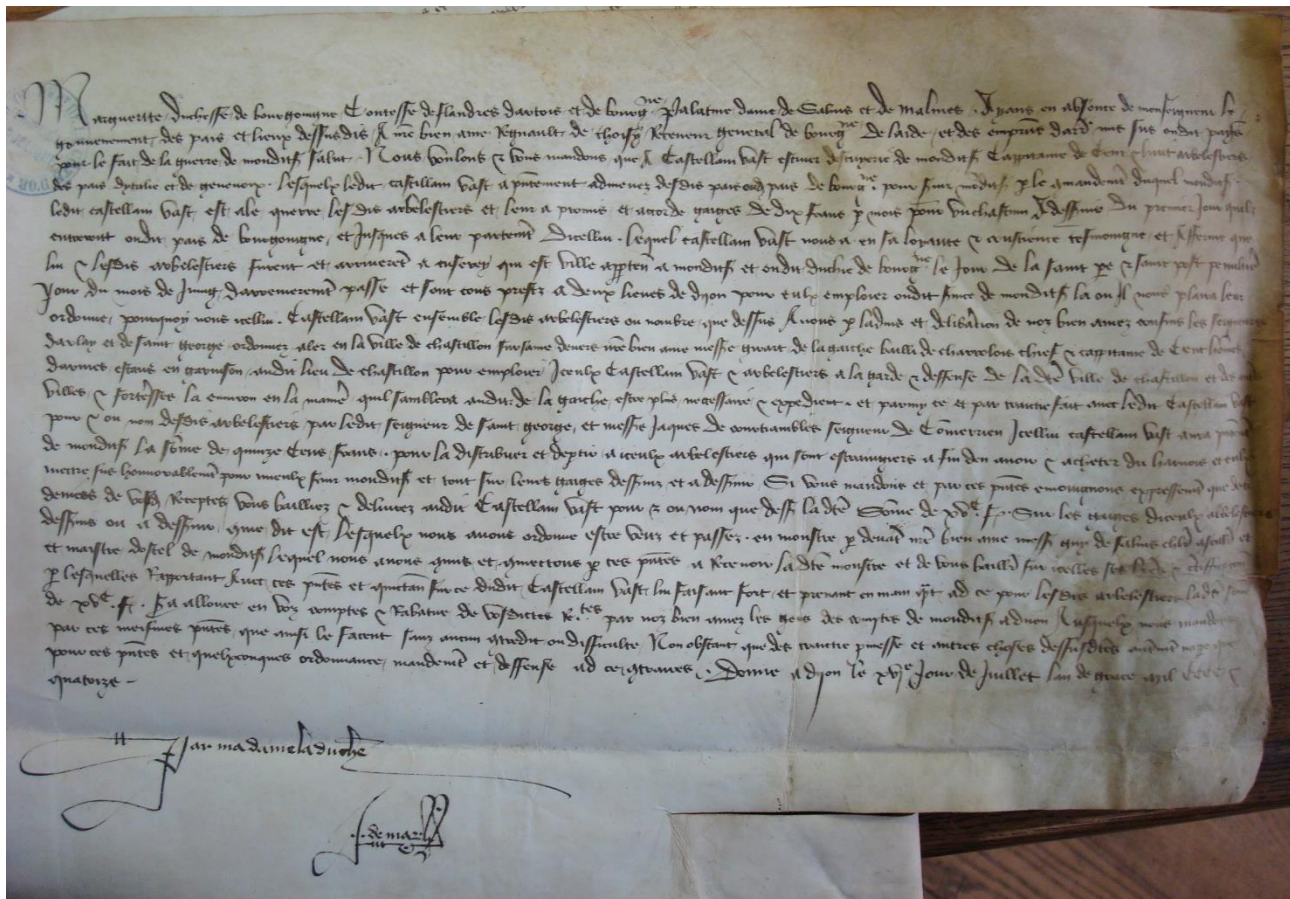 Marguerite duchesse de bourgoingne Contesse de flandres dartois et de bourg^ne Palatine dame de Salins et de Malines . Ayans en absence de monseigneur le
gouvernement des pais et lieux dessusdis A nre bien ame Regnault de thoisy Receveur general de bourg^ne de laide et des empruns mis sus oudit pays
pour le fait de la guerre de mondit s^r salut . Nous voulons & vous mandons que A Castellain Vast escuier descuyerie de mondit s^r Cappitaine de Cent & huit arbelestiers
des pais dytalie et de genenois . lesquelx ledit castellain Vast a pntement admenez desdis pais oudit pais de bourg^ne pour servir mondit s^r p le comandemt duquel mondit s^r
ledit castellain Vast est ale querre lesdis arbelestiers et leur a promis et acorde gaiges de dix frans p mois pour un chascun A desservir du premier jour quilz
entreront oudit pais de bourgoingne, et jusques a leur partemt dicellui . lequel castellain Vast nous a en sa loyaute & conscience tesmoingne et Afferme que
lui & lesdis arbelestiers furent et arriverent a cuserey qui est ville apptent a mondit s^r et oudit duchie de bourg^ne le jour de la saint pe & saint pol penultime
Jour du mois de juing darrenierement passe et sont tous prestz a deux lieues de dijon pour eulx emploier oudit service de mondit s^r la ou Il nous plaira leur
ordonne, pourquoy nous icellui Castellain Vast ensemble lesdis arbelestiers ou nombre que dessus Avons p ladvis et deliberacion de noz bien amez cousins les seigneurs
darlay et de saint george ordonnez aler en la ville de chastillon sur saine devers nre bien ame messe girart de la guiche bailli de charrolois chief & cappitaine de Cent homes
darmes estans en garnison audit lieu de chastillon pour emploier Iceulx Castellain Vast & arbelestiers a la garde & deffense de la dte ville de chastillon et des autres
villes & forteresses la environ en la maniere quil semblera audit de la guiche estre plus necessaire & expedient . et parmy ce et par traictie fait avec ledit Castellain Vast
pour & ou nom desdis arbelestiers par ledit seigneur de saint george, et messe jaques de courtiambles seigneur de Comerrien Icellui castellain Vast aura pntemt
de mondit s^r la some de quinze Cens frans . pour la distribuer et deptir a iceulx arbelestiers qui sont estrangiers a fin den avoir & acheter du harnois et eulx
mettre sus honnorablemt pour mieulx servir mondit s^r et tout sur leurs gaiges desservis et a desservir Si vous mandons et par ces pntes enjoingnons expressemt que des
deniers de vosd Receptes Vous bailliez & delivrez audit Castellain Vast pour & ou nom que dess^s la dte Some de xv^c f . Sur les gaiges diceulx arbelestiers
desservis ou a desservir, que dit est, lesquelx nous avons ordonne estre veuz et passez en monstre p devant nre bien ame mess guy de salins chlr conseill et
et maistre dostel de mondit s^r lequel nous avons commis et commettons p ces pntes a Recevoir la dte monstre et de vous baillier sur icelles ses lres & certifficacion
p lesquelles Rapportant Avec ces pntes et quictance sur ce dudit Castellain Vast, lui faisant fort et prenant en main qt ad ce pour lesdis arbelestiers ladte some
de xv^c f . sera allouee en voz comptes & Rabatue de vosdictes R^tes par noz bien amez les gens des comptes de mondit s^r a dijon Ausquelx nous mandons
par ces meismes pntes, que ainsi le facent sanz aucun contredit ou difficulte, Non obstant que des traictie pmesse et autres choses dessusdtes
pour ces pntes et quelxconques ordonnances mandemt et deffense ad ce contraires . Donne a dijon le xvj^e Jour de juillet lan de grace mil cccc &
quatorze -
Par madame la duchesse